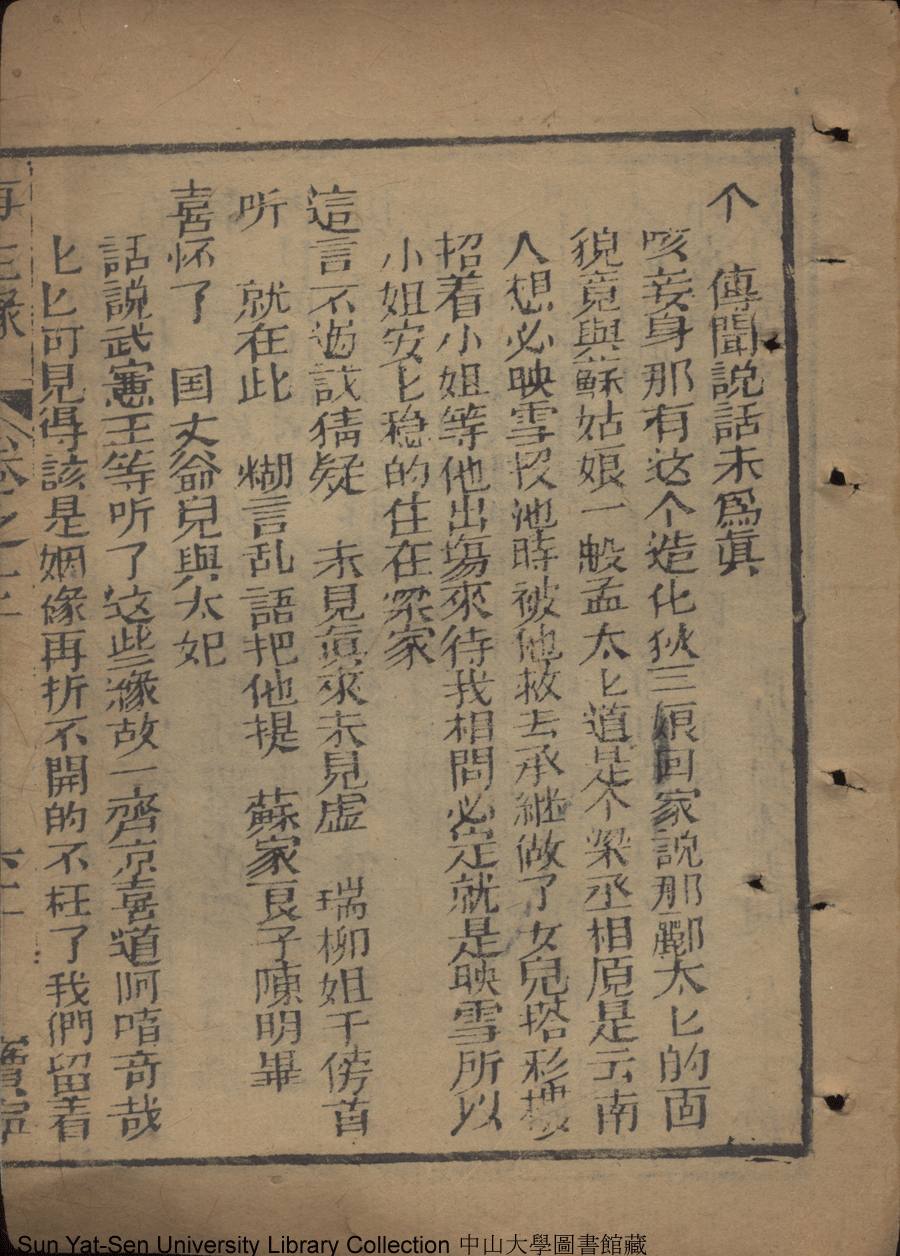 个　傳聞説話未爲眞
咳妾身那有这个造化狄三娘回家說那酈太匕的面
貌竟與蘇姑娘一般孟太匕道是个梁丞相原是云南
人想必映雪投池時被他救去承継做了女兒搭彩樓
招着小姐等他出塲來待我相問必定就是映雪所以
小姐安匕稳的住在梁家
這言不過該猜疑　未見眞來未見虛　瑞柳姐于傍首
听　就在此　糊言乱語把他提　蘇家良子陳明畢
喜怀了　国丈爺兒與太妃
話說武憲王等听了这些緣故一齊京喜道呵唶奇哉
匕匕可見得該是姻缘再折不開的不枉了我們留着
再生緣　卷之十二
Sun Yat-Sen University Library Collection 中山大學圖書館藏